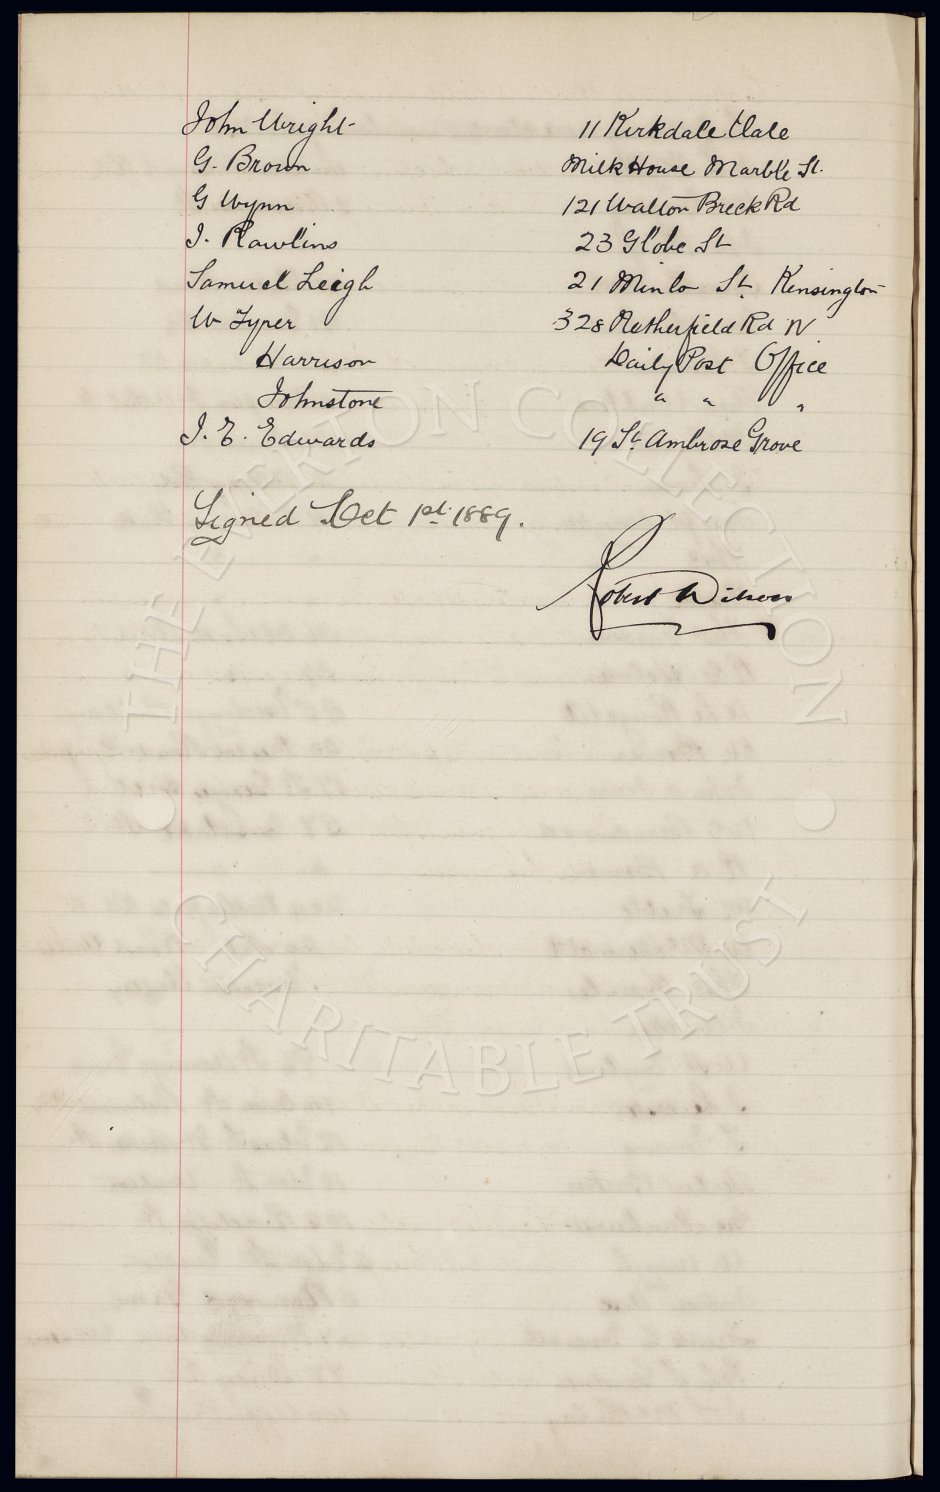 John Wright 11 Kirkdale Vale
G. Brown Milk House Marble St.
G Wynn 121 Walton Breck Rd
J. Rawlins 23 Globe St
Samuel Leigh 21 Minto St. Kensington
W Tyrer 328 Netherfield Rd N
Harrison Daily Post Office
Johnstone " " "
J. E. Edwards 19 St. Ambrose Grove
Signed Oct 1st. 1889.
Robert Wilson
THE EVERTON COLLECTION
CHARITABLE TRUST